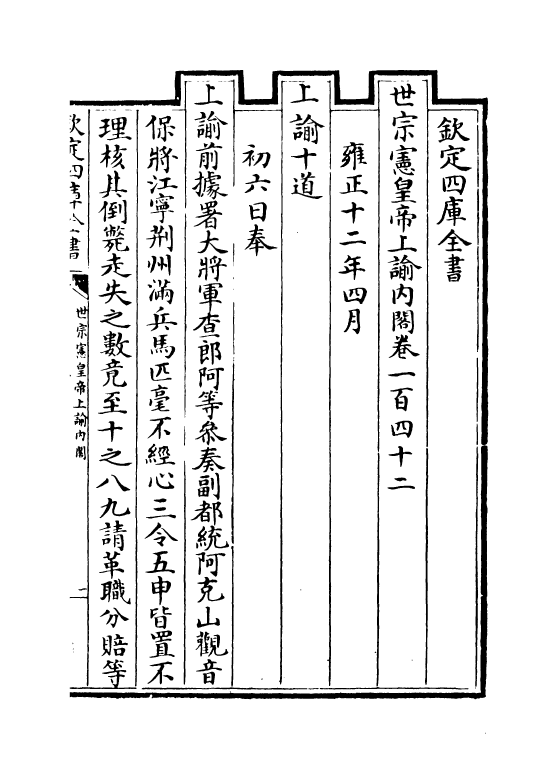 欽定四庫全書
世宗憲皇帝上諭内閣卷一百四十二
雍正十二年四月
上諭十道
初六日奉
上諭前據署大將軍查郎阿等叅奏副都統阿克山觀音
保將江寧荆州滿兵馬匹毫不經心三令五申皆置不
理核其倒斃走失之數竟至十之八九請革職分賠等
欽定四庫全書
世宗憲皇帝上諭内閣
一